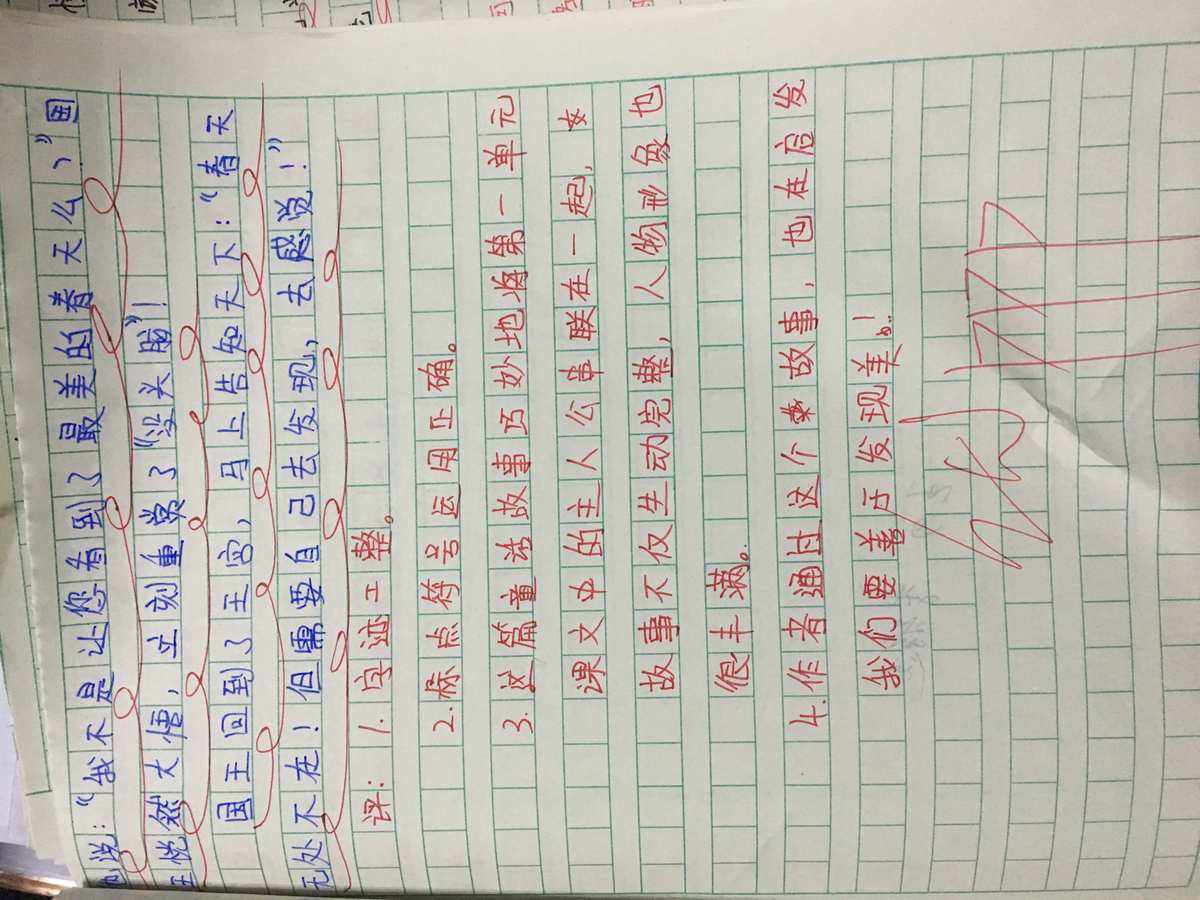 他说：“我不是让您看到了最美的春天么，”国
王悦然大悟，立刻重赏了“没头脑”！
国王回到了王宫，马上告知天下：“春天
无处不在！但需要自己去发现，去感觉！”
评：1.字迹工整。
2.标点符号运用正确。
3.这篇童话故事巧妙地将第一单元
课文中的主人公串联在一起，女
故事不仅生动完整，人物形象也
很丰满。
4.作者通过这个故事，也在启发
我们要善于发现美。！